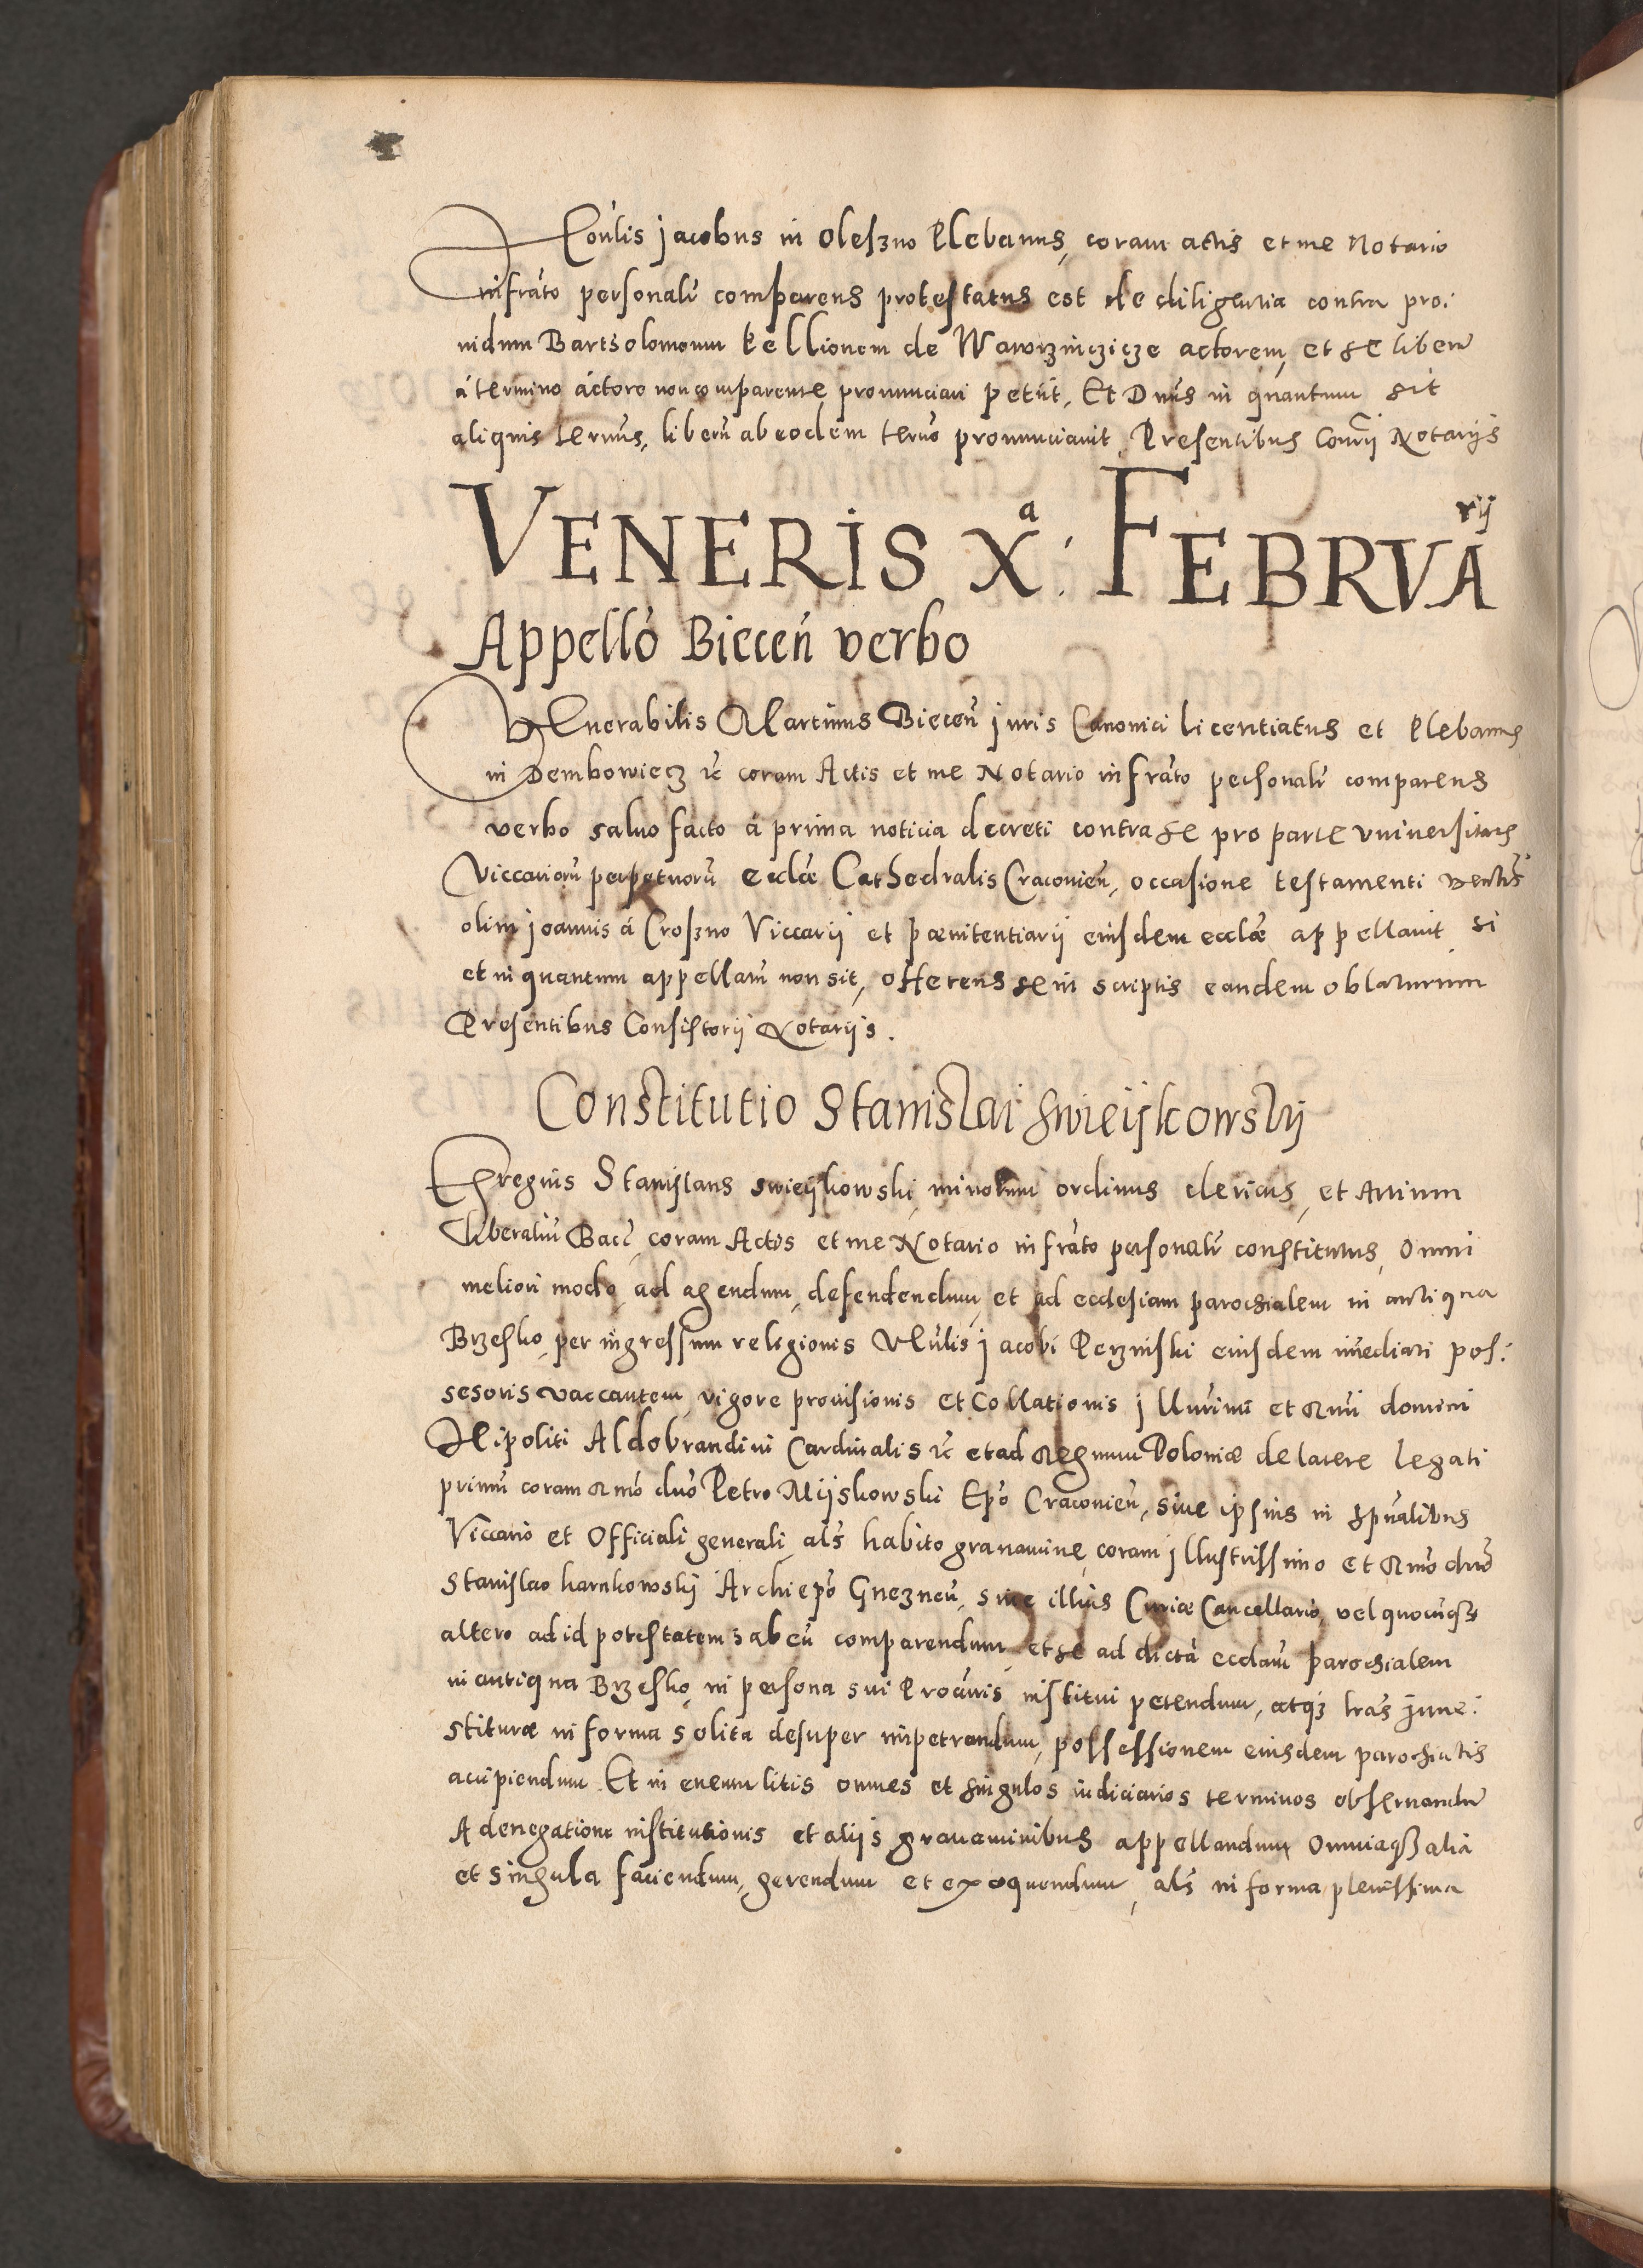 Honlis Jacobus in Oleszno Plebanus, coram actis et me Notario
infrato personalr comparens protestatus est de diligentia contra pro:
uidum Bartholomeum kellionem de Wawrzinczicze actorem, et se liberu
á termino áctore non comparente pronunciari petiit, Et Dnus in quantum sit
aliquis termus, liberu ab eodem termo pronunciauit, Presentibus Conrij Notarijs
VENERIS Xa: FEBRVArij
Appello Biecen verbo
VEnerabilis Martinus Biecen juris Canonici licentiatus et Plebanus
in Dembowiecz rc coram Actis et me Notario infrato personalr comparens
verbo saluo facto á prima noticia decreti contra se pro parte vniuersitatis
Viccarioru perpetuoru ecclae Cathedralis Cracouien, occasione testamenti
olim joannis á Croszno Viccarij et paenitentiarij eiusdem ecclae appellauit si
et in quantum appellam non sit, offerens se in scriptis eandem oblaturum
Presentibus Consistorij Notarijs.
Constitutio Stanislai Swieijkowskij
Egregius Stanislaus Swieijkowski, minorum ordinus clericus, et Artium
liberaliu Bacc, coram Actis et me Notario infrato personalr constitutus, omni
meliori modo, ad agendum, defendendum, et ad ecclesiam parochialem in antiqua
Brzesko, per ingressum religionis Vlulis jacobi Perzinski eiusdem imediati pos:
sesoris vaccantem, vigore prouisionis et Collationis jllurimi et Rmi domini
Hipoliti Aldobrandini Cardinalis rc et ad Regnum Poloniae de latere legati
primu coram Rmo dno Petro Mijskowski Epo Cracouien, siue ipsius in spualibus
Viccario et Officiali generali, als habito grauamine, coram jllustrissimo et Rmo dno
Stanislao karnkowskij Archiepo Gneznen, siue illius Curiae Cancellario, vel quocunq3
altero ad id potestatem habeñ comparendum, et se ad dictá ecclam parochialem
in antiqua Brzesko, in persona sui Procuris institui petendum, atq3 lras jnue:
stiturae in forma solita desuper impetrandum, possessionem eiusdem parochialis
accipiendum Et in euentum litis omnes et singulos iudiciarios terminos obseruandu
A denegatione institutionis et alijs grauaminibus appellandum Omniaq3 alia
et singula faciendum, gerendum et exequendum, als in forma plenissima